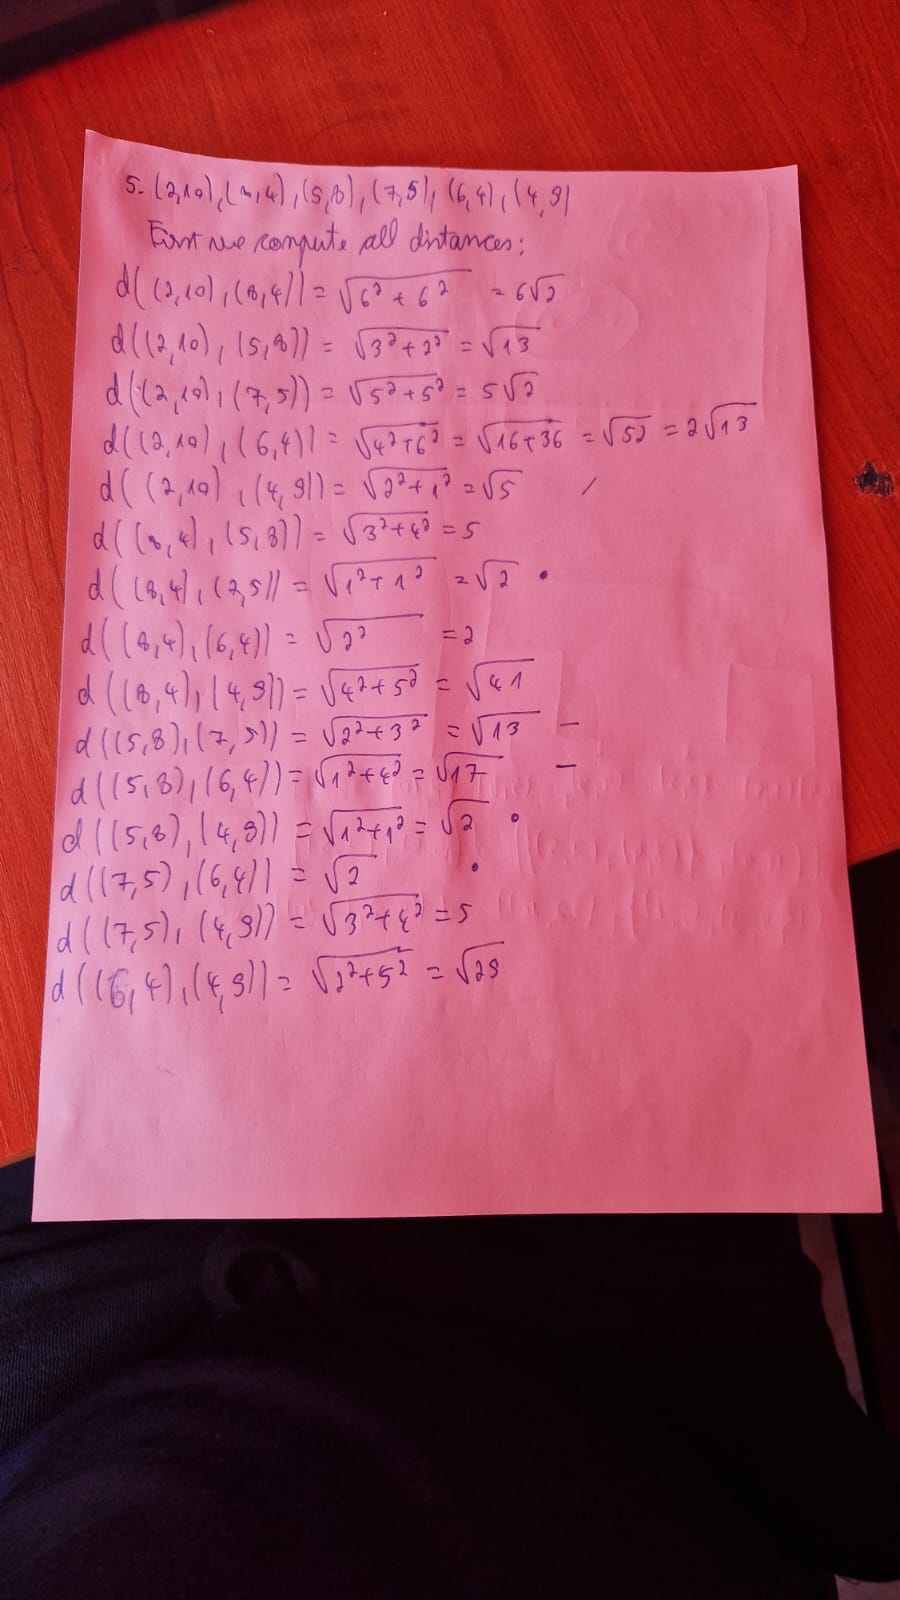 5. (2,10), (8,4), (5,8), (7,5), (6,4), (4,9)
First we compute all distances:
d((2,10), (8,4)) = √6²+6² = 6√2
d((2,10), (5,8)) = √3²+2² = √13
d((2,10), (7,5)) = √5²+5² = 5√2
d((2,10), (6,4)) = √4²+6² = √16+36 = √52 = 2√13
d((2,10), (4,9)) = √2²+1² = √5 /
d((8,4), (5,8)) = √3²+4² = 5
d((8,4), (7,5)) = √1²+1² = √2 •
d((8,4), (6,4)) = √2² = 2
d((8,4), (4,9)) = √4²+5² = √41
d((5,8), (7,5)) = √2²+3² = √13 –
d((5,8), (6,4)) = √1²+4² = √17 –
d((5,8), (4,9)) = √1²+1² = √2 •
d((7,5), (6,4)) = √2 •
d((7,5), (4,9)) = √3²+4² = 5
d((6,4), (4,9)) = √2²+5² = √29